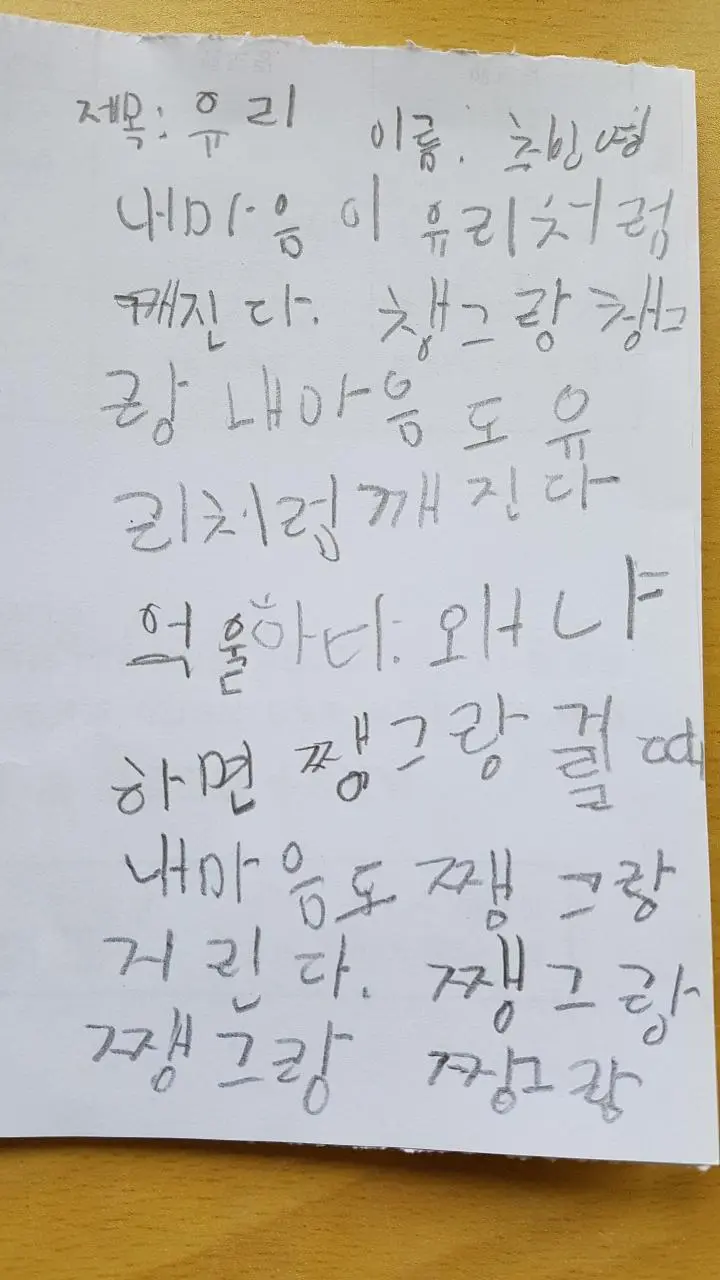 제목: 유리 이름. 추빈영
내마음이 유리처럼
깨진다. 챙그랑 챙그
랑 내마음도 유
리처럼 깨진다
억울하다. 왜냐
하면 쨍그랑 때
내마음도 쨍그랑
거린다. 쨍그랑
쨍그랑 쨍그랑